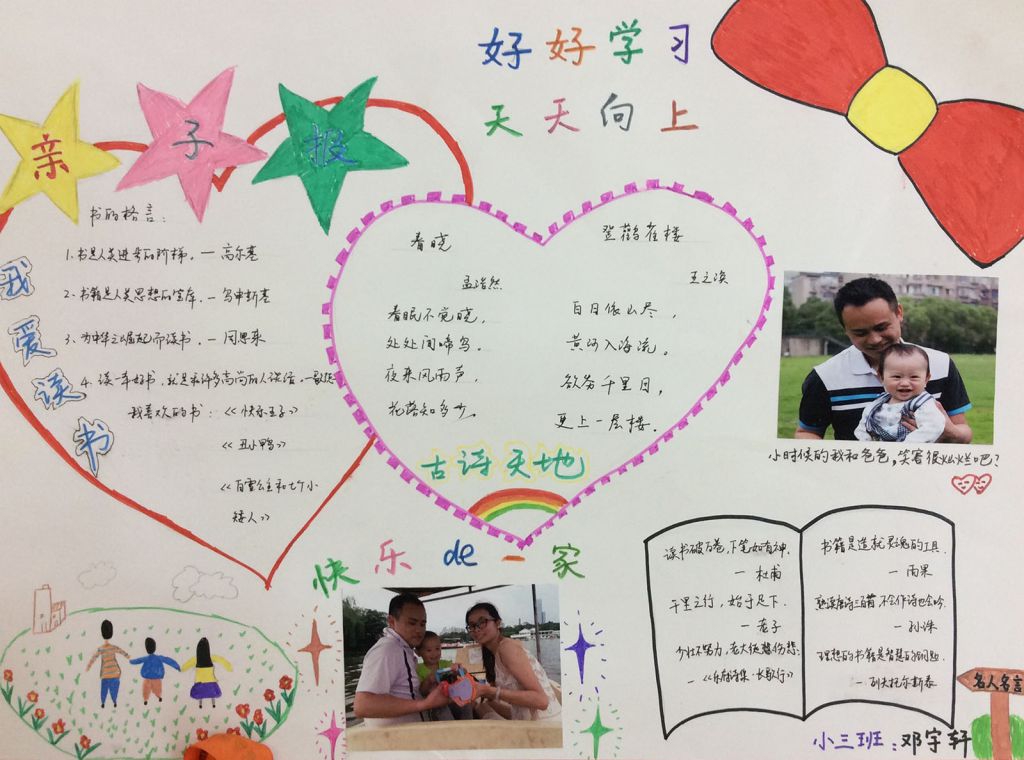 好好学习
天天向上
亲子报
我爱读书
书的格言:
1.书是人类进步的阶梯。—高尔基
2.书籍是人类思想的宝库。—乌申斯基
3.为中华之崛起而读书。—周恩来
4.读一本好书,就是和许多高尚的人谈话。—歌德
我喜欢的书:《快乐王子》
《丑小鸭》
《白雪公主和七个小
矮人》
春晓
孟浩然
春眠不觉晓,
处处闻啼鸟。
夜来风雨声,
花落知多少。
登鹳雀楼
王之涣
白日依山尽,
黄河入海流。
欲穷千里目,
更上一层楼。
古诗天地
小时候的我和爸爸,笑容很灿烂吧?
快乐de一家
读书破万卷,下笔如有神.
—杜甫
千里之行,始于足下.
—老子
少壮不努力,老大徒伤悲.
—《乐府诗集·长歌行》
书籍是造就灵魂的工具.
—雨果
熟读唐诗三百首,不会作诗也会吟.
—孙洙
理想的书籍是智慧的钥匙.
—列夫托尔斯泰
名人名言
小三班:邓宇轩